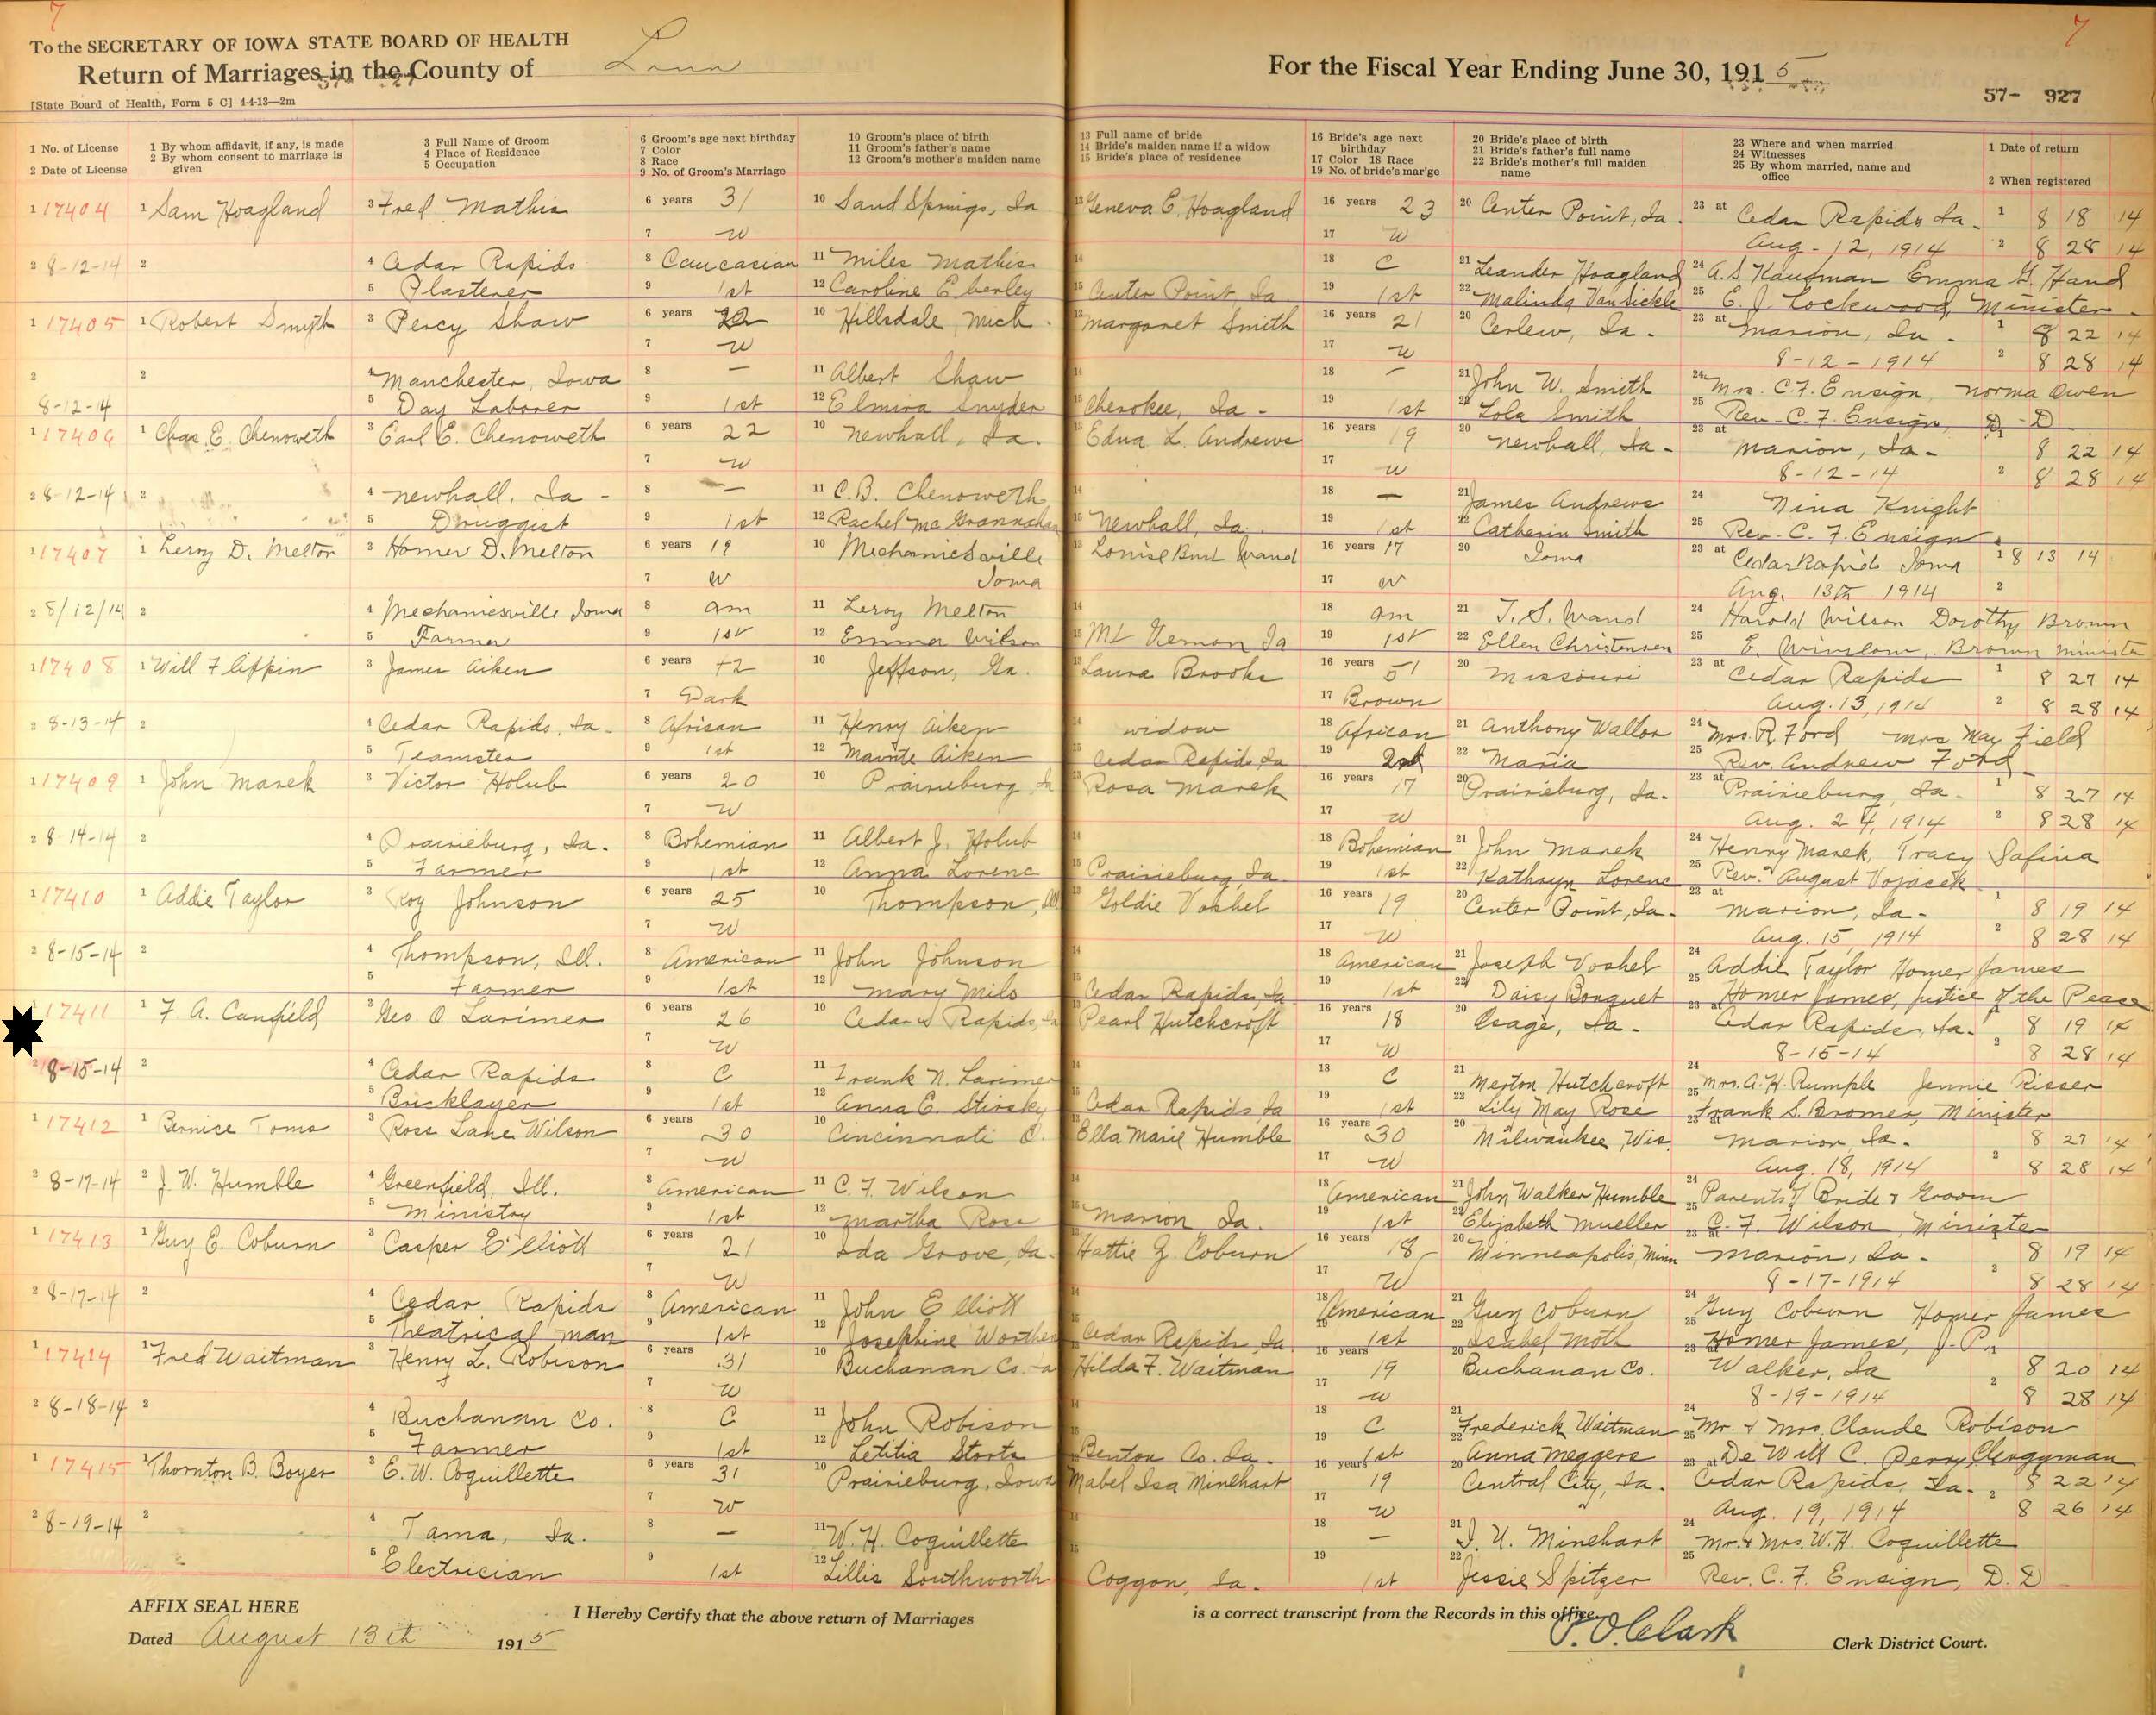 7
7
To the SECRETARY OF IOWA STATE BOARD OF HEALTH
Return of Marriages in the County of Linn
For the Fiscal Year Ending June 30, 1915
[State Board of Health, Form 5 C] 4-4-13—2m
57- 927
1 No. of License
2 Date of License
1 By whom affidavit, if any, is made
2 By whom consent to marriage is given
3 Full Name of Groom
4 Place of Residence
5 Occupation
6 Groom's age next birthday
7 Color
8 Race
9 No. of Groom's Marriage
10 Groom's place of birth
11 Groom's father's name
12 Groom's mother's maiden name
13 Full name of bride
14 Bride's maiden name if a widow
15 Bride's place of residence
16 Bride's age next birthday
17 Color 18 Race
19 No. of bride's mar'ge
20 Bride's place of birth
21 Bride's father's full name
22 Bride's mother's full maiden name
23 Where and when married
24 Witnesses
25 By whom married, name and office
1 Date of return
2 When registered
1 17404 1 Sam Hoagland 3 Fred Mathis 6 years 31 10 Sand Springs, Ia 13 Geneva E. Hoagland 16 years 23 20 Center Point, Ia. 23 at Cedar Rapids Ia. 1 8 18 14
7 W 17 W Aug. 12, 1914 2 8 28 14
2 8-12-14 2 4 Cedar Rapids 8 Caucasian 11 Miles Mathis 14 18 C 21 Leander Hoagland 24 A.S. Kaufman Emma G. Hand
5 Plasterer 9 1st 12 Caroline Eberley 15 Center Point, Ia 19 1st 22 Malinda Vansickle 25 E. J. Lockwood, Minister
1 17405 1 Robert Smyth 3 Percy Shaw 6 years 22 10 Hillsdale, Mich. 13 Margaret Smith 16 years 21 20 Ia. 23 at Marion, Ia. 1 8 22 14
7 W 17 W 8-12-1914 2 8 28 14
2 2 4 Manchester, Iowa 8 — 11 Albert Shaw 14 18 — 21 John W. Smith 24 Mrs. C.F. Ensign, Norma Owen
8-12-14 5 Day Laborer 9 1st 12 Elmira Snyder 15 Cherokee, Ia. 19 1st 22 Lola Smith 25 Rev. C. F. Ensign, D-D
1 17406 1 Chas. E. Chenoweth 3 Carl E. Chenoweth 6 years 22 10 Newhall, Ia. 13 Edna L. Andrews 16 years 19 20 Newhall, Ia. 23 at Marion, Ia. 1 8 22 14
7 W 17 W 8-12-14 2 8 28 14
2 8-12-14 2 4 Newhall, Ia. 8 — 11 C.B. Chenoweth 14 18 — 21 James Andrews 24 Nina Knight
5 Druggist 9 1st 12 Rachel McGrannahan 15 Newhall, Ia. 19 1st 22 Catherin Smith 25 Rev. C. F. Ensign
1 17407 1 Leroy D. Melton 3 Homer D. Melton 6 years 19 10 Mechanicsville 13 Louise Wand 16 years 17 20 Iowa 23 at Cedar Rapids Iowa 1 8 13 14
7 W Iowa 17 W Aug. 13th 1914 2
2 8/12/14 2 4 Mechanicsville Iowa 8 Am 11 Leroy Melton 14 18 Am 21 T. S. Wand 24 Harold Wilson Dorothy Brown
5 Farmer 9 1st 12 Emma Wilson 15 Mt Vernon Ia 19 1st 22 Ellen Christensen 25 E. Winslow Brown Ministe
1 17408 1 Will Flippin 3 James Aiken 6 years 42 10 Jeffson, Ga. 13 Laura Brooks 16 years 51 20 Missouri 23 at Cedar Rapids 1 8 27 14
7 Dark 17 Brown Aug. 13, 1914 2 8 28 14
2 8-13-14 2 4 Cedar Rapids, Ia. 8 African 11 Henry Aiken 14 widow 18 African 21 Anthony Walton 24 Mrs. R. Ford Mrs May Field
5 Teamster 9 1st 12 Aiken 15 Cedar Rapids, Ia 19 2nd 22 Maria 25 Rev. Andrew Ford
1 17409 1 John Marek 3 Victor Holub 6 years 20 10 Prairieburg, Ia 13 Rosa Marek 16 years 17 20 Prairieburg, Ia. 23 at Prairieburg, Ia. 1 8 27 14
7 W 17 W Aug. 24, 1914 2 8 28 14
2 8-14-14 2 4 Prairieburg, Ia. 8 Bohemian 11 Albert J. Holub 14 18 Bohemian 21 John Marek 24 Henry Marek, Tracy Safina
5 Farmer 9 1st 12 Anna Lorenc 15 Prairieburg, Ia. 19 1st 22 Kathryn Lorenc 25 Rev. August Vojacek
1 17410 1 Addie Taylor 3 Roy Johnson 6 years 25 10 Thompson, Ill 13 Goldie Voshel 16 years 19 20 Center Point, Ia. 23 at Marion, Ia. 1 8 19 14
7 W 17 W Aug. 15, 1914 2 8 28 14
2 8-15-14 2 4 Thompson, Ill. 8 American 11 John Johnson 14 18 American 21 Joseph Voshel 24 Addie Taylor Homer James
5 Farmer 9 1st 12 Mary Milo 15 Cedar Rapids, Ia 19 1st 22 Daisy Bouquet 25 Homer James, Justice of the Peace
1 17411 1 F. A. Canfield 3 Geo. O. Larimer 6 years 26 10 Cedar Rapids, Ia 13 Pearl Hutchcroft 16 years 18 20 Osage, Ia. 23 at Cedar Rapids, Ia. 1 8 19 14
7 W 17 W 8-15-14 2 8 28 14
2 8-15-14 2 4 Cedar Rapids 8 C 11 Frank N. Larimer 14 18 C 21 Merton Hutchcroft 24 Mrs. A. H. Rumple Jennie Risser
5 Bricklayer 9 1st 12 Anna E. Stirsky 15 Cedar Rapids, Ia 19 1st 22 Lily May Rose 25 Frank S. Bromer, Minister
1 17412 1 Bernice Toms 3 Ross Lane Wilson 6 years 30 10 Cincinnati O. 13 Ella Marie Humble 16 years 30 20 Milwaukee, Wis. 23 at Marion, Ia. 8 27 14
7 W 17 W Aug. 18, 1914 2 8 28 14
2 8-17-14 2 J. W. Humble 4 Greenfield, Ill. 8 American 11 C. F. Wilson 14 18 American 21 John Walker Humble 24 Parents of Bride & Groom
5 Ministry 9 1st 12 Martha Rose 15 Marion Ia. 19 1st 22 Elizabeth Mueller 25 C. F. Wilson, Minister
1 17413 1 Guy E. Coburn 3 Casper Elliott 6 years 21 10 Ida Grove, Ia. 13 Hattie Z. Coburn 16 years 18 20 Minneapolis, Minn 23 at Marion, Ia. 8 19 14
7 W 17 W 8-17-1914 2 8 28 14
2 8-17-14 2 4 Cedar Rapids 8 American 11 John Elliott 14 18 American 21 Guy Coburn 24 Guy Coburn Homer James
5 Theatrical man 9 1st 12 Josephine Worthen 15 Cedar Rapids, Ia. 19 1st 22 Isabel Moth 25 Homer James, J.P.
1 17414 1 Fred Waitman 3 Henry L. Robison 6 years 31 10 Buchanan Co. Ia 13 Hilda F. Waitman 16 years 19 20 Buchanan Co. 23 at Walker, Ia 1 8 20 14
7 W 17 W 8-19-1914 2 8 28 14
2 8-18-14 2 4 Buchanan Co. 8 C 11 John Robison 14 18 C 21 Frederick Waitman 24 Mr. & Mrs. Claude Robison
5 Farmer 9 1st 12 Letitia Storts 15 Benton Co. Ia. 19 1st 22 Anna Meggers 25 De Witt C. Perry, Clergyman
1 17415 1 Thornton B. Boyer 3 E. W. Coquillette 6 years 31 10 Prairieburg, Iowa Mabel Isa Minehart 16 years 19 20 Central City, Ia. 23 at Cedar Rapids, Ia. 8 22 14
7 W 17 W Aug. 19, 1914 2 8 26 14
2 8-19-14 2 4 Tama, Ia. 8 — 11 W. H. Coquillette 14 18 — 21 I. U. Minehart 24 Mr. & Mrs. W. H. Coquillette
5 Electrician 9 1st 12 Lillis Southworth 15 Coggon, Ia. 19 1st 22 Jessie Spitzer 25 Rev. C. F. Ensign, D.D
AFFIX SEAL HERE
I Hereby Certify that the above return of Marriages is a correct transcript from the Records in this office.
Dated August 13th 1915
P. O. Clark Clerk District Court.